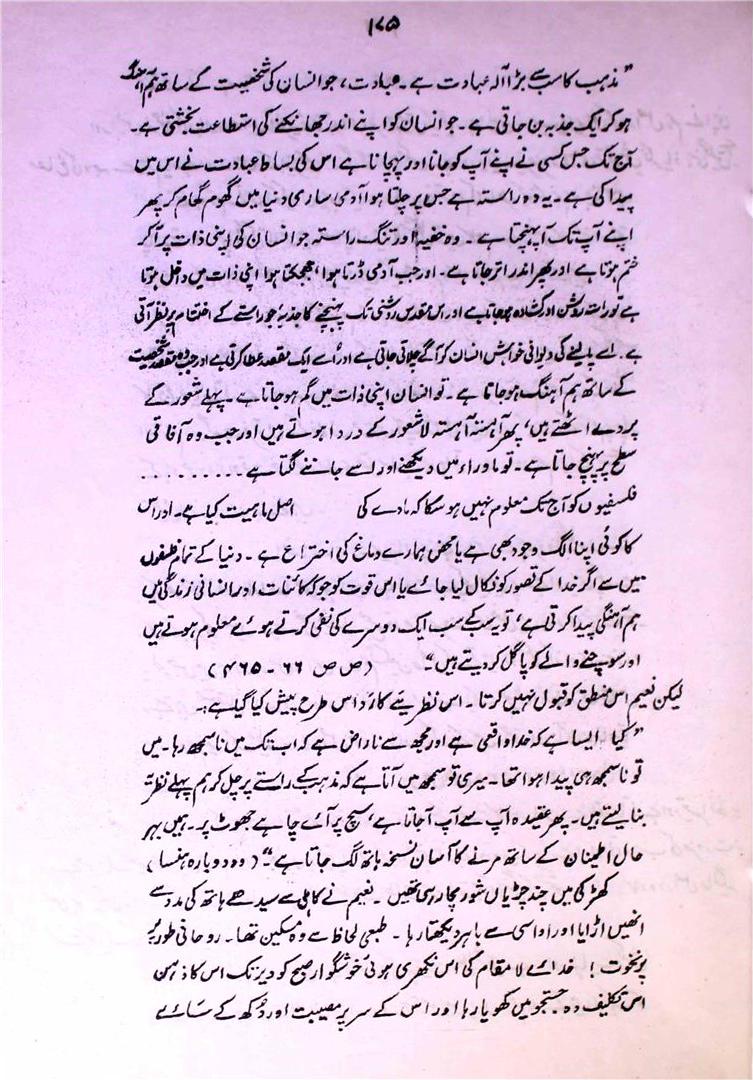 ۱۷۵
”مذہب کا سب سے بڑا آلہ عبادت ہے۔ عبادت، جو انسان کی شخصیت کے ساتھ ہم آہنگ
ہو کر ایک جذبہ بن جاتی ہے۔ جو انسان کو اپنے اندر جھانکنے کی استطاعت بخشتی ہے۔
آج تک جس کسی نے اپنے آپ کو جانا اور پہچانا ہے اس کی بساط عبادت نے اس میں
پیدا کی ہے۔ یہ وہ راستہ ہے جس پر چلتا ہوا آدمی ساری دنیا میں گھوم گھام کر پھر
اپنے آپ تک آ پہنچتا ہے۔ وہ خفیہ اور تنگ راستہ جو انسان کی اپنی ذات پر آ کر
ختم ہوتا ہے اور پھر اندر اتر جاتا ہے۔ اور جب آدمی ڈرتا ہوا، جھجکتا ہوا اپنی ذات میں داخل ہوتا
ہے تو راستہ روشن اور کشادہ ہو جاتا ہے اور اس مقدس روشنی تک پہنچنے کا جذبہ جو راستے کے اختتام پر نظر آتی
ہے۔ اسے پا لینے کی دیوانی خواہش انسان کو آگے چلاتی جاتی ہے اور اسے ایک مقصد عطا کرتی ہے اور جب وہ مقصد شخصیت
کے ساتھ ہم آہنگ ہو جاتا ہے۔ تو انسان اپنی ذات میں گم ہو جاتا ہے۔ پہلے شعور کے
پردے اٹھتے ہیں، پھر آہستہ آہستہ لاشعور کے در وا ہوتے ہیں اور جب وہ آفاقی
سطح پر پہنچ جاتا ہے۔ تو ماوراء میں دیکھنے اور اسے جاننے لگتا ہے . . . . . . . . .
فلسفیوں کو آج تک معلوم نہیں ہو سکا کہ مادے کی اصل ماہیت کیا ہے۔ اور اس
کا کوئی اپنا الگ وجود بھی ہے یا محض ہمارے دماغ کی اختراع ہے۔ دنیا کے تمام فلسفوں
میں سے اگر خدا کے تصور کو نکال لیا جائے یا اس قوت کو جو کہ کائنات اور انسانی زندگی میں
ہم آہنگی پیدا کرتی ہے، تو یہ سب کے سب ایک دوسرے کی نفی کرتے ہوئے معلوم ہوتے ہیں
اور سوچنے والے کو پاگل کر دیتے ہیں“ (ص ص ۶۶ - ۴۶۵)
لیکن نعیم اس منطق کو قبول نہیں کرتا۔ اس نظریئے کا رَد اس طرح پیش کیا گیا ہے:۔
”کیا ایسا ہے کہ خدا واقعی ہے اور مجھ سے ناراض ہے کہ اب تک میں ناسمجھ رہا۔ میں
تو ناسمجھ ہی پیدا ہوا تھا۔ میری تو سمجھ میں آتا ہے کہ مذہب کے راستے پر چل کر ہم پہلے نظریہ
بنا لیتے ہیں۔ پھر عقیدہ آپ سے آپ آ جاتا ہے، سچ پر آئے چاہے جھوٹ پر۔ ہیں بہر
حال اطمینان کے ساتھ مرنے کا آسان نسخہ ہاتھ لگ جاتا ہے“ (وہ دوبارہ ہنسا)
کھڑکی میں چند چڑیاں شور مچا رہی تھیں۔ نعیم نے کاہلی سے سیدھے ہاتھ کی مدد سے
انھیں اڑایا اور اداسی سے باہر دیکھتا رہا۔ طبعی لحاظ سے وہ مسکین تھا۔ روحانی طور پر
پُر نخوت! خدائے لا مقام کی اس نکھری ہوئی خوشگوار صبح کو دیر تک اس کا ذہن
اس تکلیف دہ جستجو میں کھویا رہا اور اس کے سر پر مصیبت اور دُکھ کے سائے